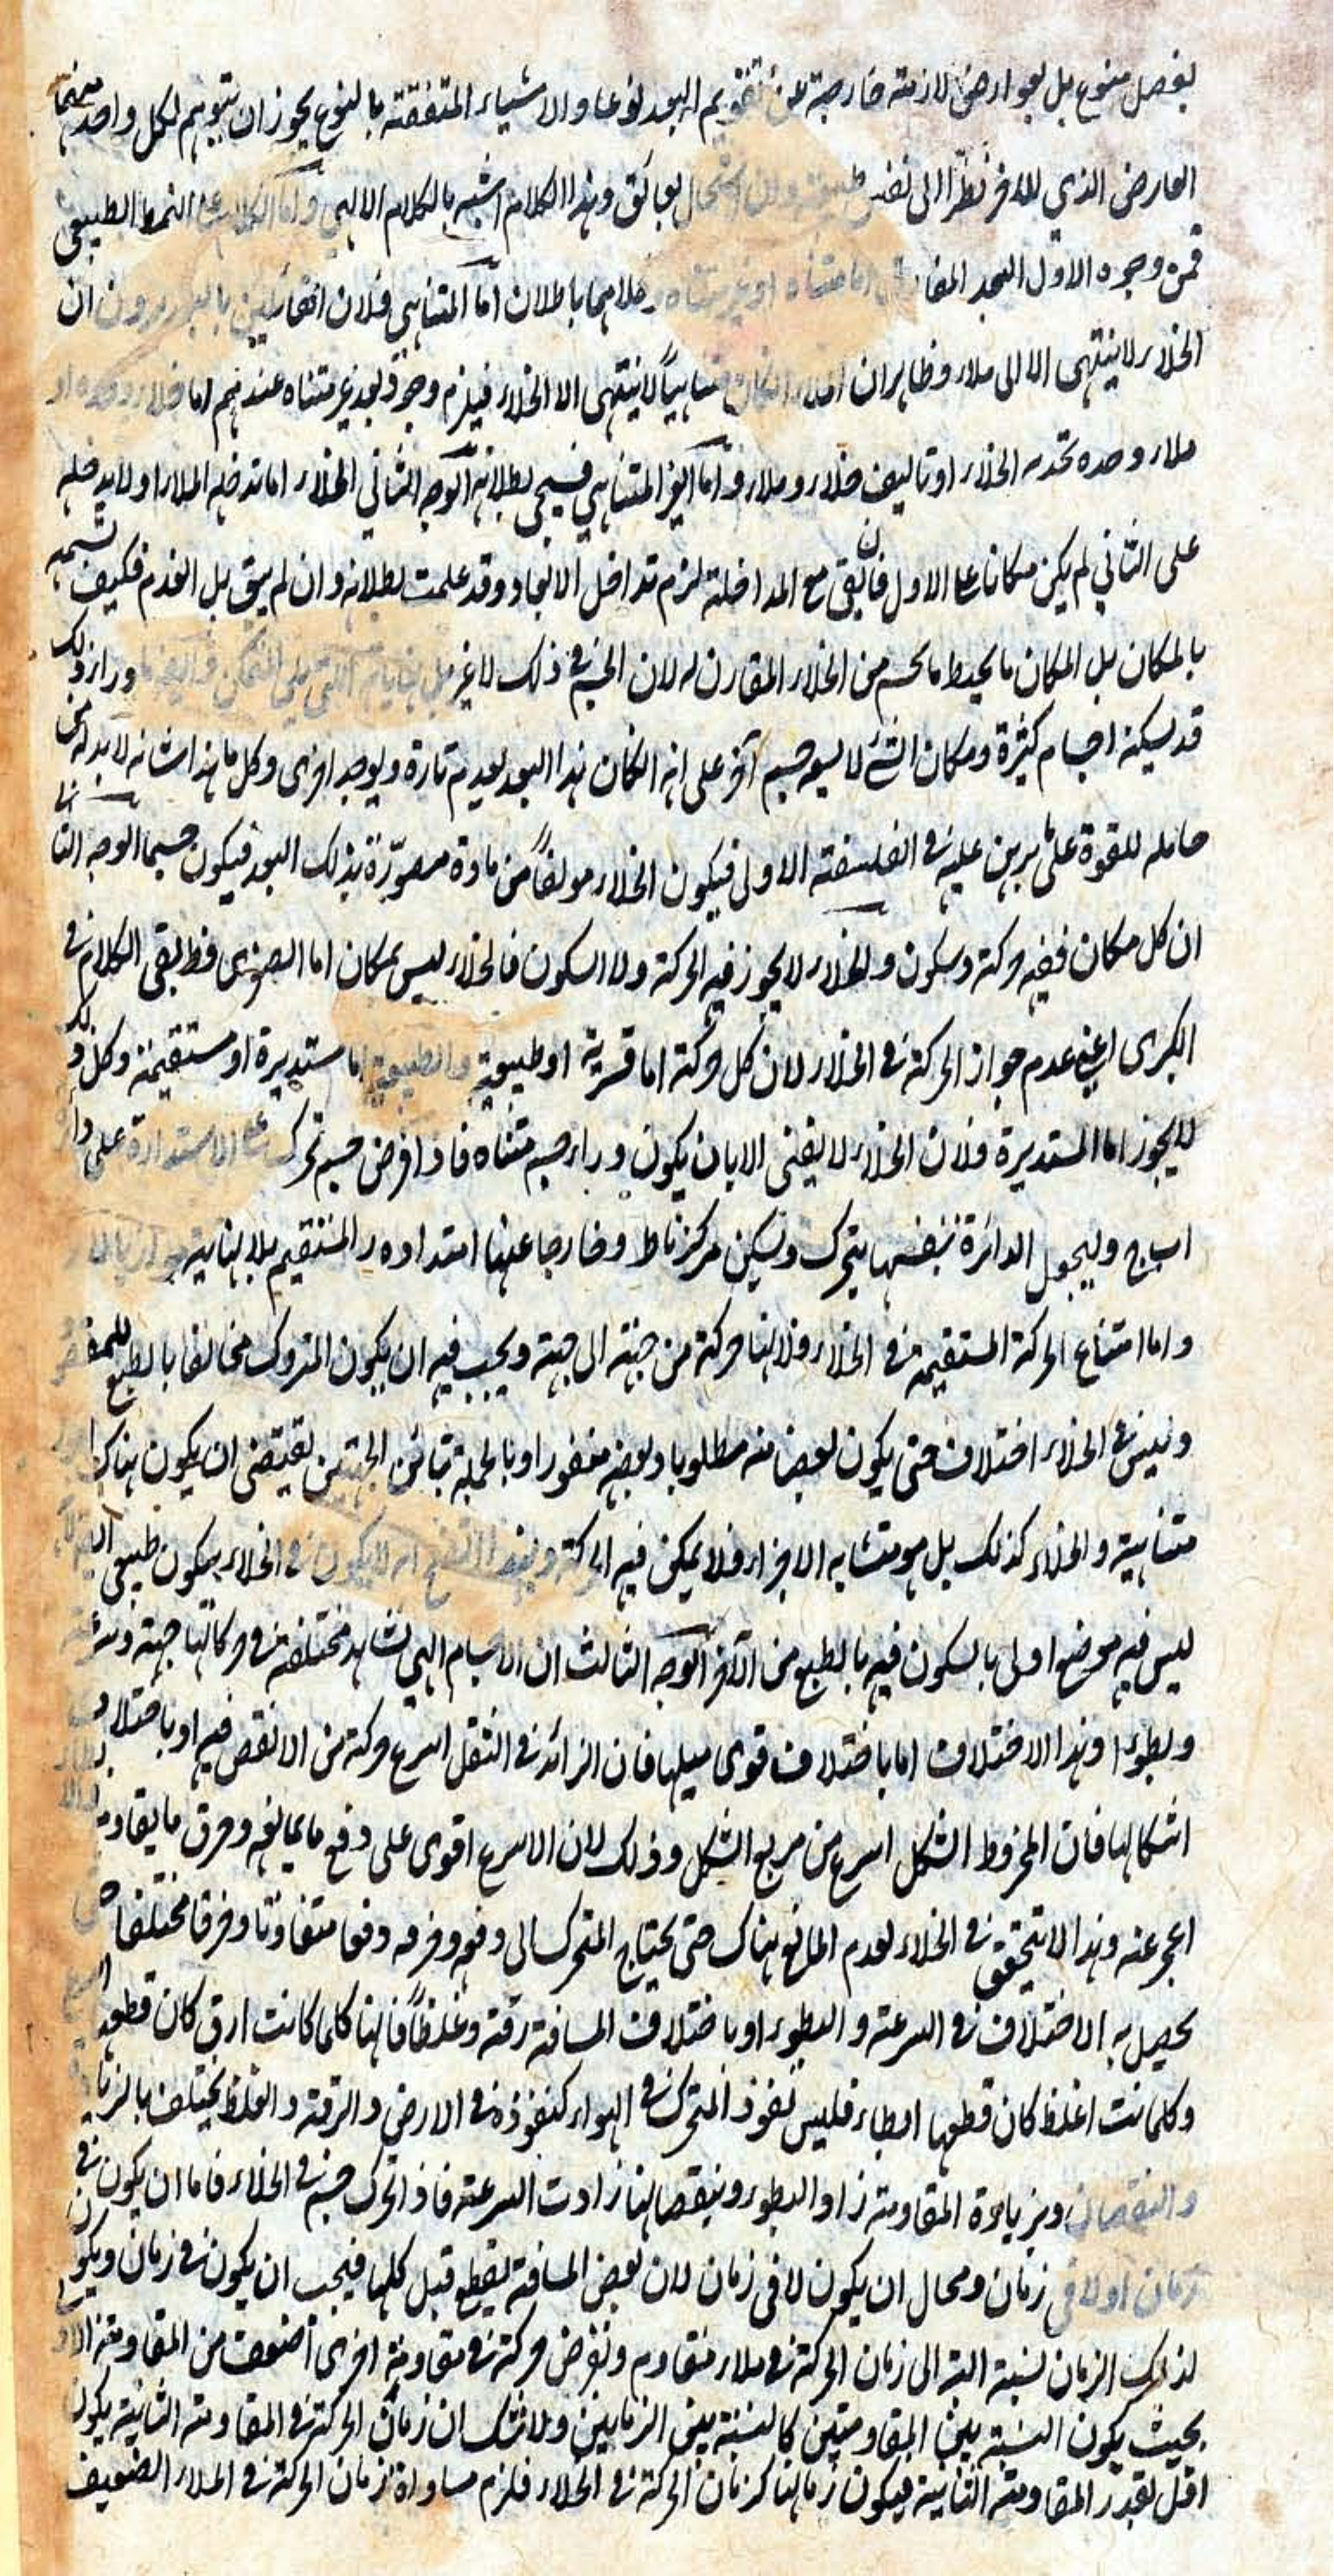 بفصل منوع بل بعوارض لازمة خارجة عن تقويم البعد نوعا والاشياء المتفقة بالنوع يجوز ان يتوهم لكل واحد منهما
العارض الذي للاخر نظرا الى نفس طبيعته وان استحال بعائق وهذا الكلام اشبه بالكلام الالهي واما الكلام على النمط الطبيعي
فمن وجوه الاول البعد المفارق اما متناه او غير متناه وكلاهما باطلان اما المتناهي فلان القائلين بالبعد يرون ان
الخلاء لا ينتهى الا الى ملاء وظاهر ان الملاء ان كان متناهياً لا ينتهى الا الى الخلاء فيلزم وجود بعد غير متناه عندهم اما خلاء وحده او
ملاء وحده تحده الخلاء او تاليف خلاء وملاء واما الغير المتناهي فسيجئ بطلانه الوجه الثاني الخلاء اما تداخله الملاء او لا يداخله
على الثاني لم يكن مكانا وعلى الاول فان بقى مع المداخلة لزم تداخل الابعاد وقد علمت بطلانه وان لم يبق بل انعدم فكيف تسميه
بالمكان بل المكان ما يحيط بالجسم من الخلاء المقارن له لان الجسم في ذلك لا غير بل نهايته التي تلي المتمكن وايضا ما وراء ذلك
قد يسكنه اجسام كثيرة ومكان الشئ لا يسعه جسم آخر على انه ان كان هذا البعد يعدم تارة ويوجد اخرى وكل ما هذا شانه لا بد له من
حامله للقوة على ما برهن عليه في الفلسفة الاولى فيكون الخلاء مولفاً من مادة مصوّرة بذلك البعد فيكون جسما الوجه الثا
ان كل مكان ففيه حركة وسكون والخلاء لا يجوز فيه الحركة ولا السكون فالخلاء ليس بمكان اما الصغرى فظ بقى الكلام في
الكبرى اعني عدم جواز الحركة في الخلاء لان كل حركة اما قسرية او طبيعية والطبيعية اما مستديرة او مستقيمة وكل ذلك
لا يجوز اما المستديرة فلان الخلاء لا يفنى الا بان يكون وراء جسم متناه فاذا فرض جسم تحرك على الاستدارة على دائرة
ا ب ج وليجعل الدائرة بنفسها يتحرك وليكن مركز ناط وخارجا عنها امتداد ه ر المستقيم بلا نهاية
واما امتناع الحركة المستقيمة في الخلاء فلانها حركة من جهة الى جهة ويجب فيه ان يكون المتروك مخالفا بالطبع للمقصود
وليس في الخلاء اختلاف حتى يكون بعض منه مطلوبا وبعضه منفورا وبالجملة تباين الجهتين يقتضى ان يكون هناك
متناهية والخلاء كذلك بل هو متشابه الاجزاء فلا يمكن فيه الحركة وبهذا اتضح انه لا يكون في الخلاء سكون طبيعي اذ
ليس فيه موضع اولى بالسكون فيه بالطبع من الآخر الوجه الثالث ان الاجسام التي نشاهد مختلفة في حركاتها جهة وسرعة
وبطوءا وهذا الاختلاف اما باختلاف قوى ميلها فان الزائد في الثقل اسرع حركة من الانقص فيه او باختلاف
اشكالها فان المخروط الشكل اسرع من مربع الشكل وذلك لان الاسرع اقوى على دفع ما يمانعه وخرق ما يقاومه
اعجز عنه وهذا لا يتحقق في الخلاء لعدم المانع هناك حتى يحتاج المتحرك الى دفعه وخرقه دفعا متفاوتا وخرقا مختلفا حتى
يحصل به الاختلاف في السرعة والبطوء او باختلاف المسافة رقة وغلظاً فانها كلما كانت ارق كان قطعه
وكلما كانت اغلظ كان قطعها ابطاء فليس نفوذ المتحرك في الهواء كنفوذه في الارض والرقة والغلظ يختلف بالزيادة
والنقصان وبزيادة المقاومة زاد البطوء وبنقصانها زادت السرعة فاذا تحرك جسم في الخلاء فاما ان يكون في
زمان او لا في زمان ومحال ان يكون لا في زمان لان بعض المسافة يقطع قبل كلها فيجب ان يكون في زمان ويكون
لذلك الزمان نسبة البتة الى زمان الحركة في ملاء مقاوم ونفرض حركة في مقاومة اخرى اضعف من المقاومة الاو
بحيث يكون النسبة بين المقاومتين كالنسبة بين الزمانين ولا شك ان زمان الحركة في المقاومة الثانية يكون
اقل بقدر المقاومة الثانية فيكون زمانها كزمان الحركة في الخلاء فلزم مساواة زمان الحركة في الملاء الضعيف